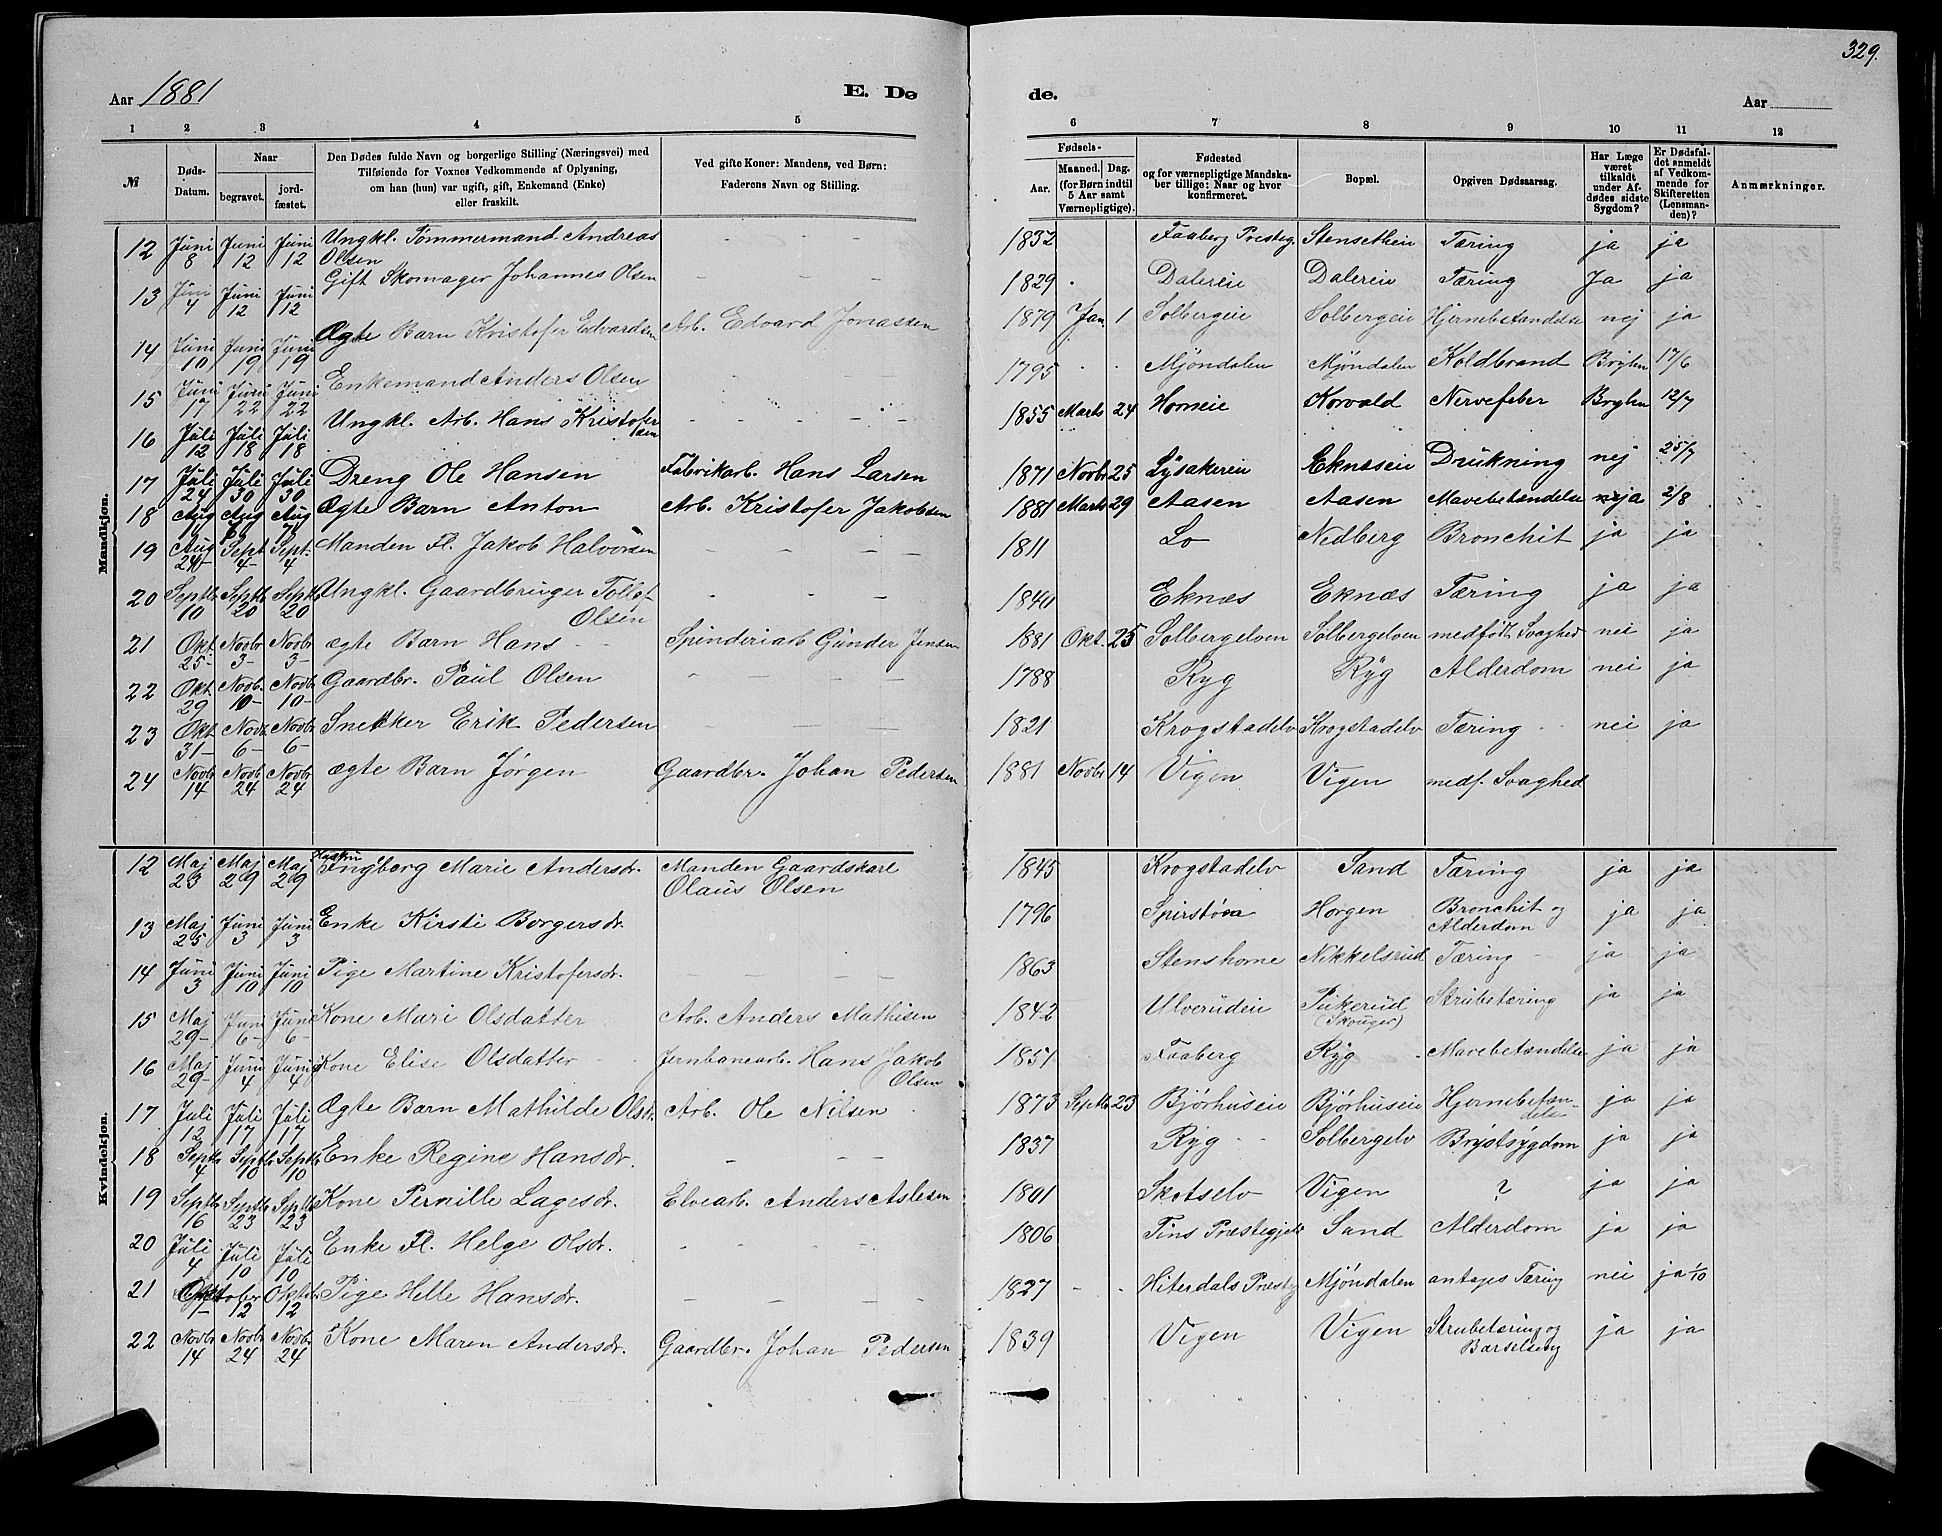 329.
Aar 1881 E. Dø de. Aar
1 2 3 4 5 6 7 8 9 10 11 12
№ Døds-Datum. Naar begravet. jordfæstet. Den Dødes fulde Navn og borgerlige Stilling (Næringsvei) med Tilføiende for Voxnes Vedkommende af Oplysning, om han (hun) var ugift, gift, Enkemand (Enke) eller fraskilt. Ved gifte Koner: Mandens, ved Børn: Faderens Navn og Stilling. Fødsels- Aar. Maaned. Dag. (for Børn indtil 5 Aar samt Værnepligtige). Fødested og for værnepligtige Mandskaber tillige: Naar og hvor konfirmeret. Bopæl. Opgiven Dødsaarsag. Har Læge været tilkaldt under Afdødes sidste Sygdom? Er Dødsfaldet anmeldt af Vedkommende for Skifteretten (Lensmanden)? Anmærkninger.
Mandkjøn.
12 Juni 8 Juni 12 Juni 12 Ungkl. Tømmermand Andreas Olsen - - - 1832 Faaberg Presteg. Stensetheie Tæring ja ja
13 Juni 4 Juni 12 Juni 12 Gift Skomager Johannes Olsen - - - 1829 Dalereie Dalereie Tæring Ja ja
14 Juni 10 Juni 19 Juni 19 Ægte Barn Kristofer Edvardsen Arb. Edvard Jonassen 1879 Jan. 1 Solbergeie Solbergeie Hjernebetændelse nej ja
15 Juni 17 Juni 22 Juni 22 Enkemand Anders Olsen - - - 1795 Mjøndalen Mjøndalen Koldbrand Bryhn 17/6
16 Juli 12 Juli 18 Juli 18 Ungkl. Arb. Hans Kristofersen - - - 1855 Marts 24 Horneie Korvald Nervefeber Bryhn 12/7
17 Juli 24 Juli 30 Juli 30 Dreng Ole Hansen Fabrikarb. Hans Larsen 1871 Novbr 25 Lysakereie Eknæseie Drukning nej 25/7
18 Aug Aug Aug 7 Ægte Barn Anton Arb. Kristofer Jakobsen 1881 Marts 29 Aasen Aasen Mavebetændelse ja 2/8
19 Aug 24 Sept 4 Sept. 4 Manden Fl. Jakob Halvorsen - - - 1811 Lo Nedberg Bronchit ja ja
20 Septb 10 Septb 20 Septb 20 Ungkl. Gaardbruger Tollef Olsen - - - 1840 Eknæs Eknæs Tæring ja ja
21 Okt 25 Novbr 3 Novbr 3 ægte Barn Hans Spinderiarb Gunder Jensen 1881 Okt. 25 Solbergelven Solbergelven medfødt Svaghed nei ja
22 Okt 29 Novbr. 10 Novbr 10 Gaardbr. Paul Olsen - - - 1788 Ryg Ryg Alderdom nei ja
23 Okt 31 Novb. 6 Novbr 6 Snekker Erik Pedersen - - - 1821 Krogstadelv Krogstadelv Tæring nei ja
24 Novbr 14 Novbr 24 Novbr 24 ægte Barn Jørgen Gaardbr. Johan Pedersen 1881 Novbr 14 Vigen Vigen medf. Svaghed
Kvindekjøn.
12 Maj 23 Maj 29 Maj 29 Ingberg Marie Andersdr. Manden Gaardskarl Olaus Olsen 1845 Krogstadelv Sand Tæring ja ja
13 Maj 25 Juni 3 Juni 3 Enke Kirsti Borgersdr. 1796 Spirstøa Horgen Bronchit og Alderdom ja ja
14 Juni 3 Juni 10 Juni 10 Pige Martine Kristofersdr. - - - 1863 Stenshorne Nikkelsrud Tæring ja ja
15 Maj 29 Juni 6 Juni 6 Kone Mari Olsdatter Arb. Anders Mathisen 1842 Ulverudeie Pukerud (Skouger) Strubetæring ja ja
16 Maj 29 Juni 4 Juni 4 Kone Elise Olsdatter Jernbanearb. Hans Jakob Olsen 1851 Faaberg Ryg Mavebetændelse ja ja
17 Juli 12 Juli 17 Juli 17 Ægte Barn Mathilde Olsdr. Arb. Ole Nilsen 1873 Septb 23 Bjørhuseie Bjørhuseie Hjernebetændelse ja ja
18 Septb 4 Septb 10 Septb 10 Enke Regine Hansdr. - - - 1837 Ryg Solbergelv Brystsygdom ja ja
19 Septb 16 Septb 23 Septb 23 Kone Pernille Lagesdr. Elvearb. Anders Aslesen 1801 Skotselv Vigen ? ja ja
20 Juli 4 Juli 10 Juli 10 Enke Fl. Helge Olsdr. - - - 1806 Tins Præstegjeld Sand Alderdom ja ja
21 Oktober 1 12 Oktbr 12 Pige Helle Hansdr. - - - 1827 Hiterdals Præstg Mjøndalen antages Tæring nei ja 1/10
22 Novbr 14 Novbr 24 Novbr. 24 Kone Maren Andersdr. Gaardbr. Johan Pedersen 1839 Vigen Vigen Strubetæring og Barselseng ja ja